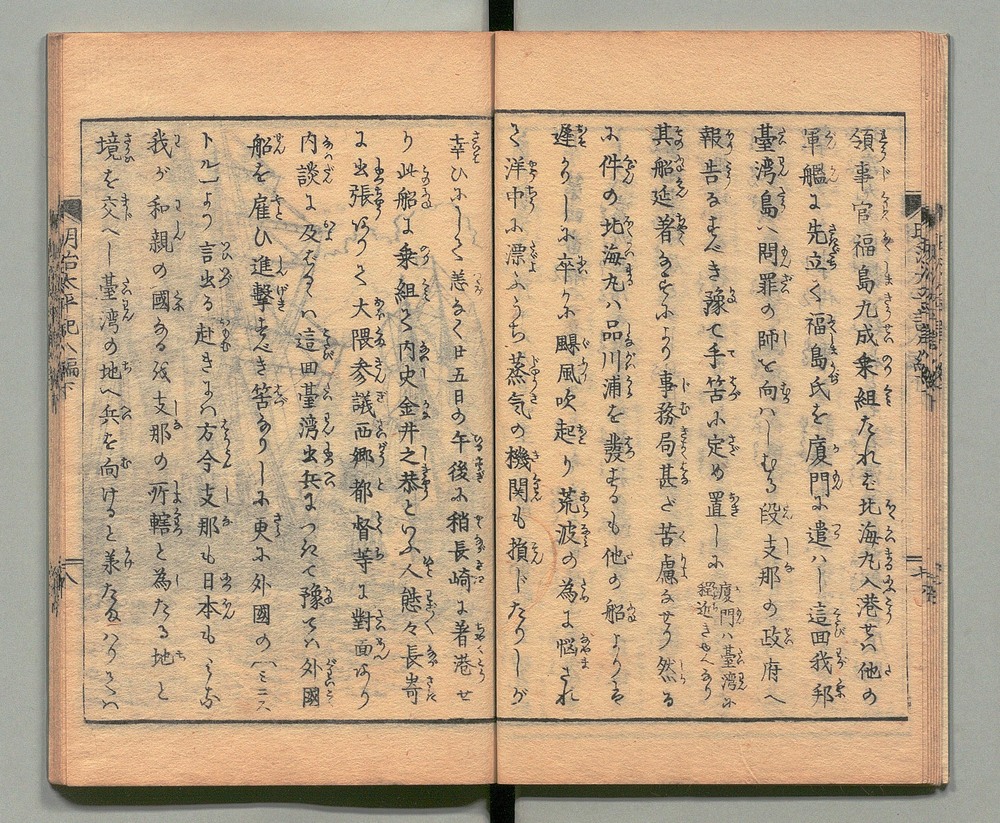 領事官福島九成乗組たれバ北海丸入港せバ他の
軍艦に先立て福島氏を廈門に遣ハし這回我邦
臺湾島へ問罪の師を向ハしむる段支那の政府へ
報告るすべき豫て手筈に定め置しに 廈門ハ臺湾に程近きゆゑなり
其船延著なるにより事務局甚だ苦慮なせり然る
に件の北海丸ハ品川浦を發するも他の船よりは
遅かりしに卒かに颶風吹起り荒波の為に悩され
て洋中に漂ふうち蒸気の機関も損じたりしが
幸ひにして恙なく廿五日の午後に稍長崎に著港せ
り此船に乗組て内史金井之恭といふ人態々長崎
に出張ありて大隈参議西郷都督等に對面あり
内談に及ばるゝハ這回臺湾出兵につきて豫てハ外國
船を雇ひ進撃すべき筈なりしに更に外國の（ミニス
トル）より言出る赴きにハ方今支那も日本も
我が和親の國なる彼支那の所轄と為たる地と
境を交へし臺湾の地へ兵を向けると
明治太平記八編下
八